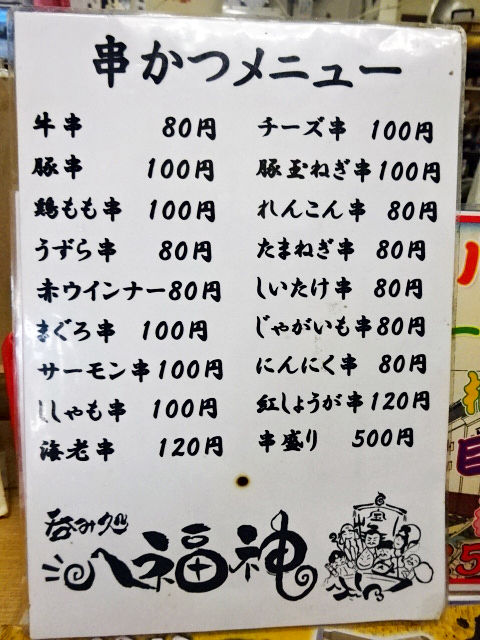 串かつメニュー
牛串 80円
豚串 100円
鶏もも串 100円
うずら串 80円
赤ウインナー 80円
まぐろ串 100円
サーモン串 100円
ししゃも串 100円
海老串 120円
チーズ串 100円
豚玉ねぎ串 100円
れんこん串 80円
たまねぎ串 80円
しいたけ串 80円
じゃがいも串 80円
にんにく串 80円
紅しょうが串 120円
串盛り 500円
呑み処
八福神